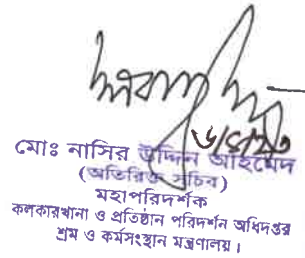 মোঃ নাসির উদ্দিন আহমেদ
(অতিরিক্ত সচিব)
মহাপরিদর্শক
কলকারখানা ও প্রতিষ্ঠান পরিদর্শন অধিদপ্তর
শ্রম ও কর্মসংস্থান মন্ত্রণালয়।